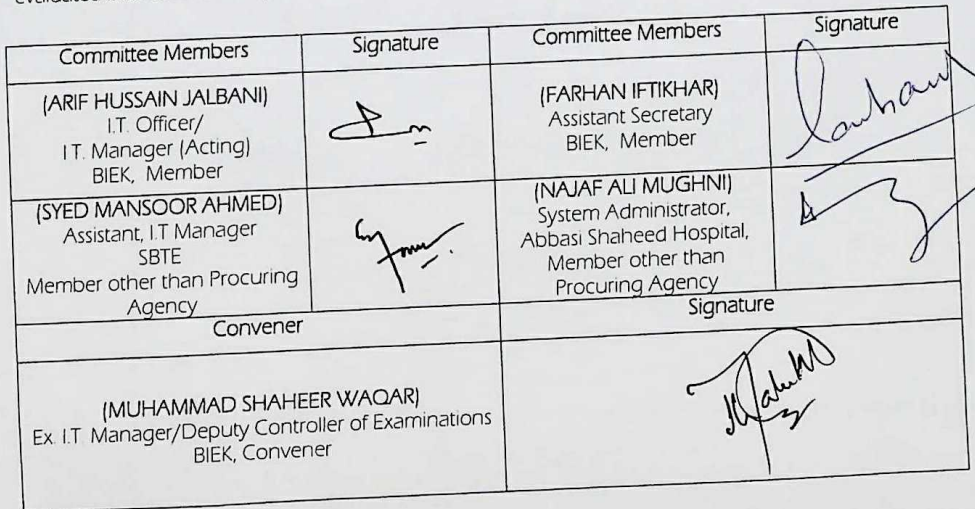 Committee Members
Signature
Committee Members
Signature
(ARIF HUSSAIN JALBANI)
I.T. Officer/
I T. Manager (Acting)
BIEK, Member
(FARHAN IFTIKHAR)
Assistant Secretary
BIEK, Member
(SYED MANSOOR AHMED)
Assistant, I.T Manager
SBTE
Member other than Procuring
Agency
(NAJAF ALI MUGHNI)
System Administrator,
Abbasi Shaheed Hospital,
Member other than
Procuring Agency
Convener
Signature
(MUHAMMAD SHAHEER WAQAR)
Ex. I.T. Manager/Deputy Controller of Examinations
BIEK, Convener